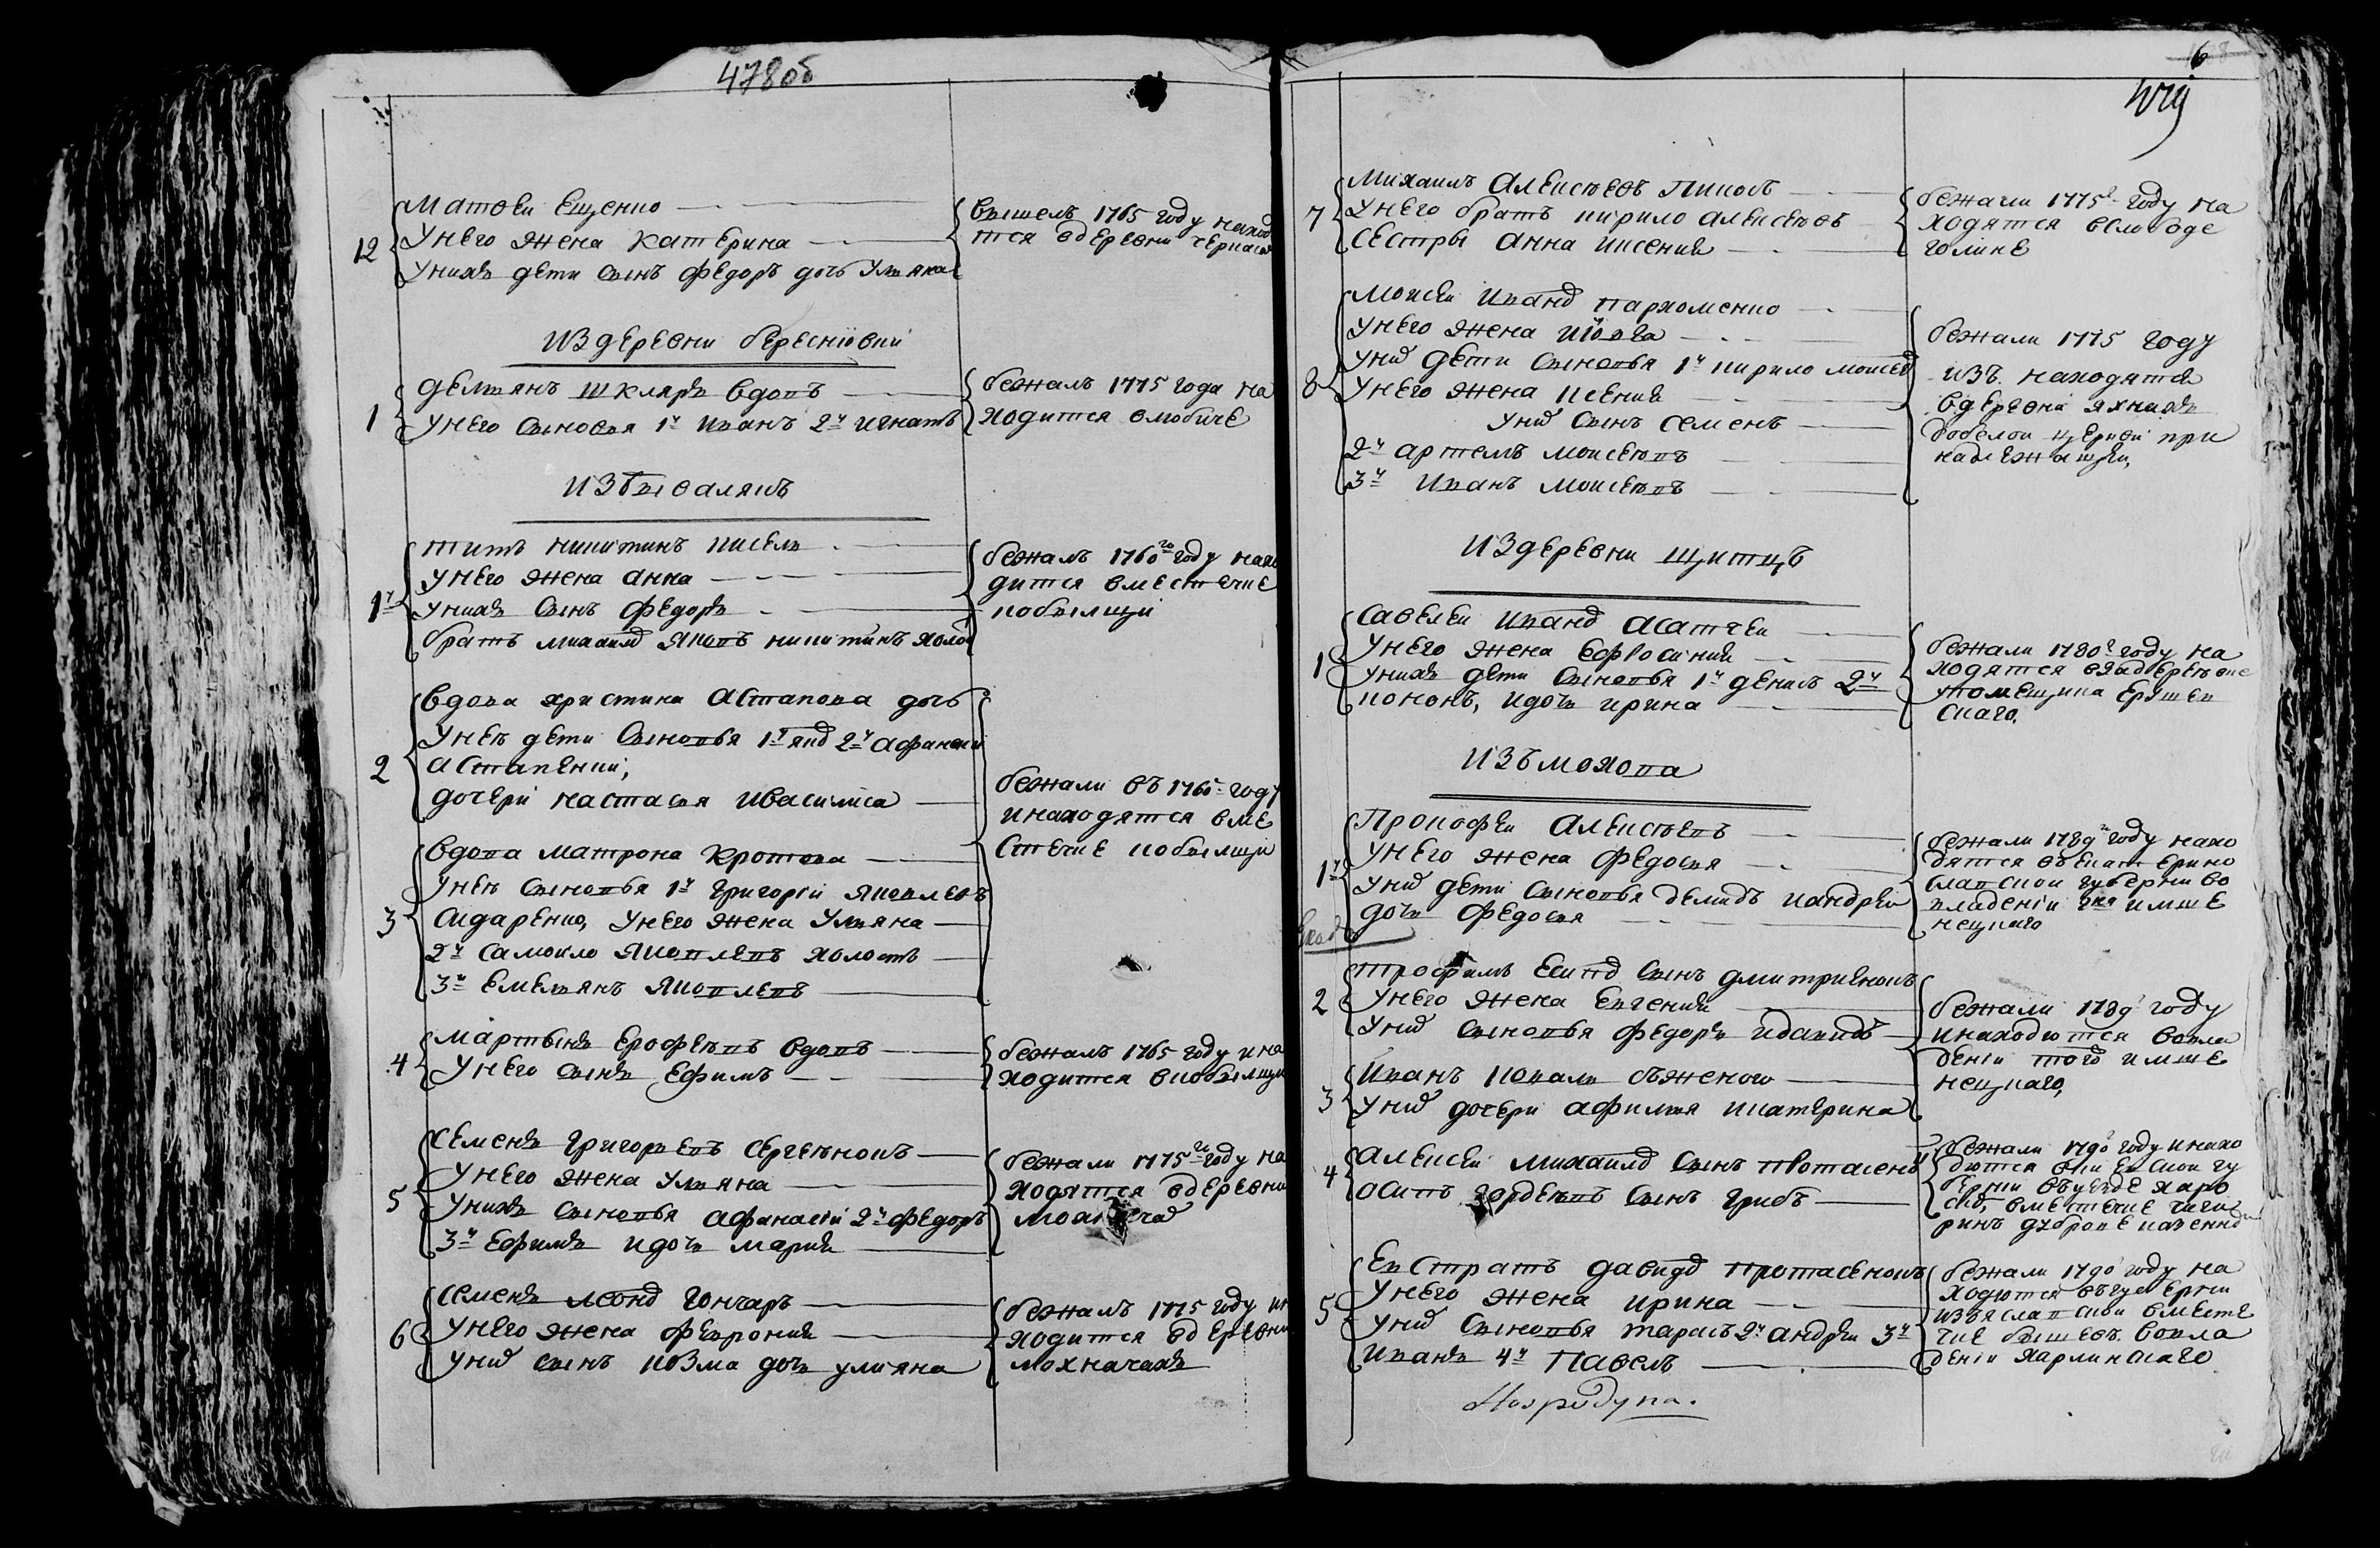 478об
12
Матвеи Ещенко
Унего жена Катерина
Унихъ дети сынъ Федоръ дочь Уляна
вышелъ 1765 году наход
тся вдеревни
издеревни Бересновки
1
Делянъ шкляръ вдовъ
Унего сыновья 1й Иванъ 2й Игнатъ
бежалъ 1775 года на
ходится влюбиче
изБывалякъ
1й
Титъ никитинъ кисель
Унего жена анна
Унихъ сынъ Федоръ
братъ михаилъ Яковъ никитинъ холо
бежалъ 1760го году нахо
дится вместечке
кобылщи
2
вдова христина Астапова дочь
Унея дети сыновья 2й афанаси
Астапенки,
дочери настасья ивасилиса
3
вдова матрона Кротова
Унея сыновья 1й григорій Яковлевъ
Сидаренко, Унего жена Уляна
2й Самоило Яковлевъ холостъ
3й Емельянъ Яковлевъ
бежали въ 1765 году
инаходятся вме
стечке кобылщи
4
мартынъ Ерофеевъ вдовъ
Унего сынъ Ефимъ
бежалъ 1765 году ина
ходится вкобылщи
5
Семенъ григорьевъ Сергеенокъ
Унего жена Уляна
Унихъ сыновья афанасій 2й Федоръ
3й Ефимъ идочь марія
бежали 1775го году на
ходятся вдеревни
6
Семенъ леонд гончаръ
Унего жена Феврония
Унид сынъ козма дочь уляна
бежалъ 1775 году ин
ходится вдеревни
мохначахъ
6
7
Михаилъ Алексеевъ Пиковъ
Унего братъ кирило алексеевъ
Сестры анна иксения
бежали 1775г году на
ходятся вслободе
голике
8
Моисеи иванд пархоменко
Унего жена
Унид дети сыновья 1й кирило моисев
Унего жена ксения
Унид сынъ Семенъ
2й артемъ моисеевъ
3й иванъ моисеевъ
бежали 1775 году
изъ находятся
вдеревни яхнихъ
кобелои церкви при
надлежащеи,
издеревни щитцъ
1
Савелеи иванд асатчеи
Унего жена Ефросиния
Унихъ дети сыновья 1й денисъ 2й
кононъ, идочь ирина
бежали 1780г году на
ходятся взадереевке
упомещика
скаго.
изъмохова
1й
Прокофеи Алексеевъ
Унего жена Федосья
Унид дети сыновья демидъ иандреи
дочь Федосья
бежали 1789г году нахо
дятся въекатерино
славскои губерни во
владеніи имше
нецкаго
2
трофимъ Есипд сынъ дмитриенокъ
Унего жена Евгения
Унид сыновья Федоръ идавидъ
3
иванъ коваль
Унид дочери афимья икатерина
бежали 1789 году
инаходются вовла
деніи того имше
нецкаго,
4
Алексеи михаилд сынъ протасенк
Осипъ гордеевъ сынъ грибъ
бежали 1790 году инахо
дются вкиевскои гу
берніи въуезде
вместечке чиги
ринъ
5
Евстратъ давидд протасенокъ
Унего жена ирина
Унид сыновья тарасъ 2й андреи 3й
иванъ 4й Павелъ
бежали 1790 году на
ходются въгуберни
изъяславскои вместе
чке вовла
деніи Харлинскаго